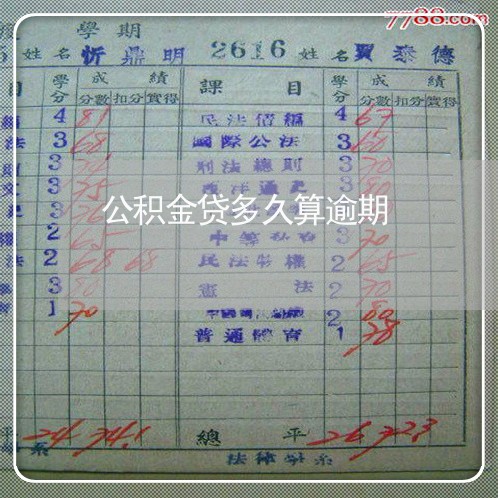 7788.com
學期
姓名 忻鼎明 2616 姓名 賈泰德
目 學分 成績 課目 學分 成績
分數 扣分 實得 分數 扣分 實得
4 81 民法債編 4 67
法 3 68 國際公法 3 60
3 刑法總則 3 70
3 75 西洋通史 3 80
公积金贷多久算逾期
2 65 3 70
法 2 68 68 民法物權 2 65
3 80 憲法 2 70
1 70 2 80
普通體育 1 78
平 24 74.1 總平 26 72.3
系 法律學系